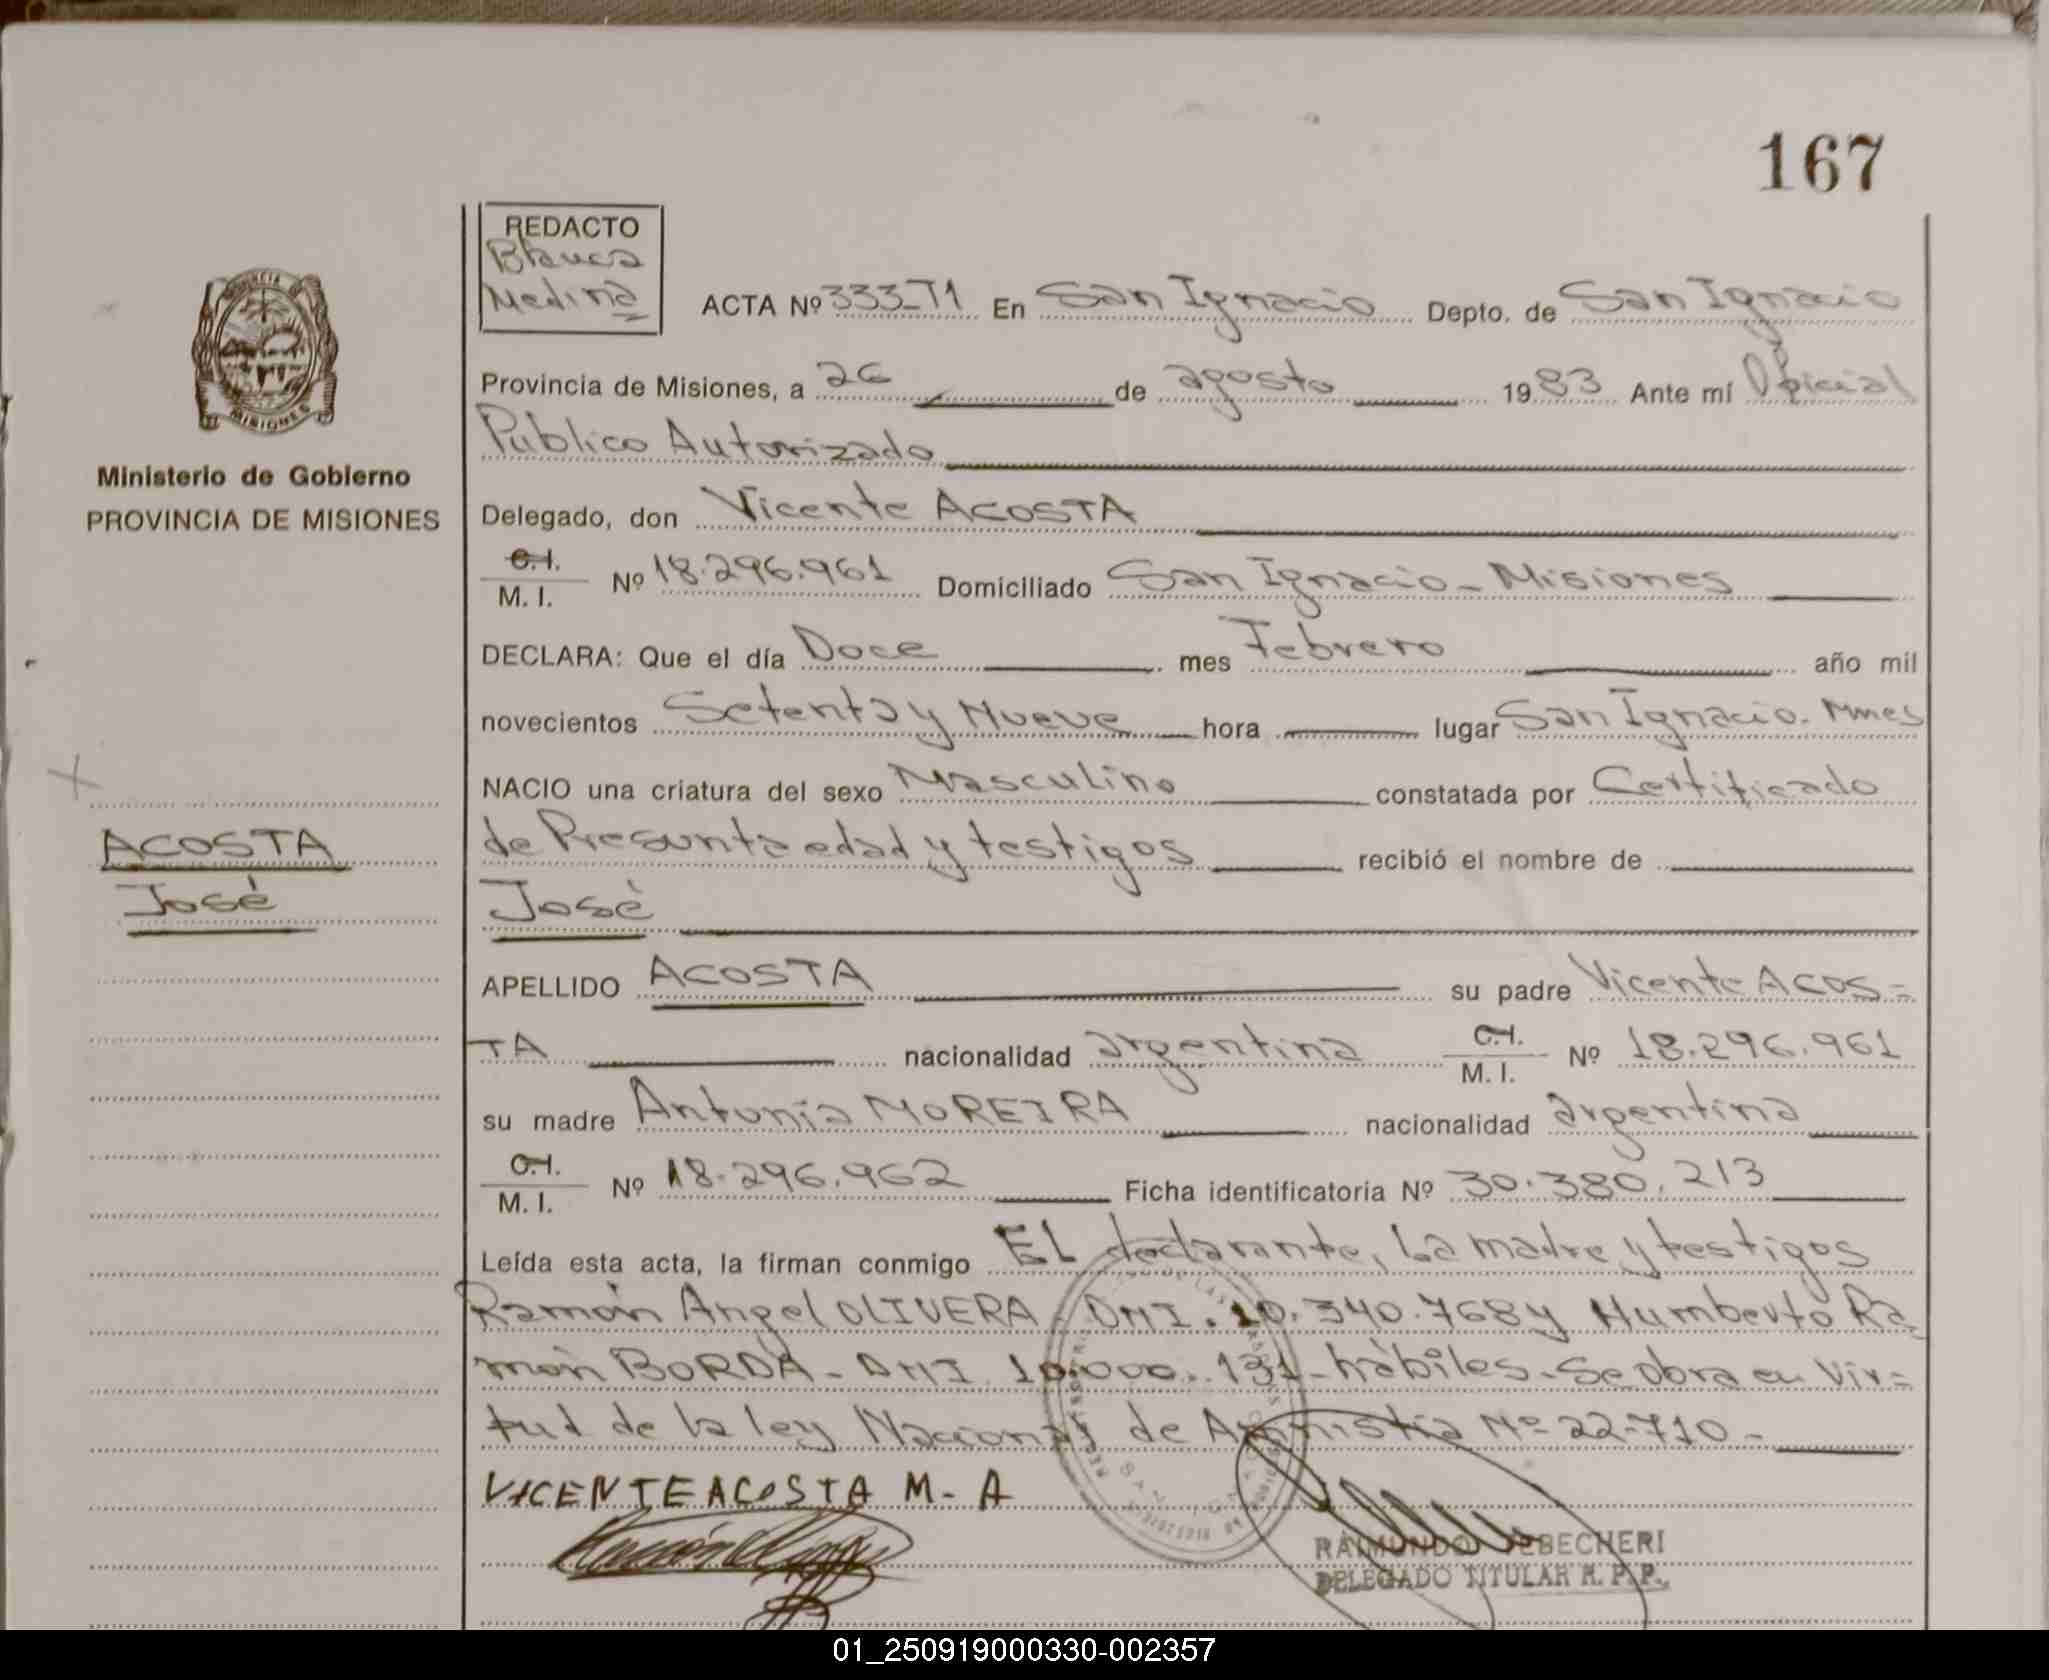 167
REDACTO
Blanca
Medina
ACTA Nº 333-T1 En San Ignacio Depto. de San Ignacio
Provincia de Misiones, a 26 de agosto 1983 Ante mí Oficial
Público Autorizado
Ministerio de Gobierno
PROVINCIA DE MISIONES
Delegado, don Vicente ACOSTA
C.I.
M. I. Nº 18.296.961 Domiciliado San Ignacio - Misiones
DECLARA: Que el día Doce mes Febrero año mil
novecientos Setenta y Nueve hora lugar San Ignacio. Mnes
NACIO una criatura del sexo Masculino constatada por Certificado
de Presunta edad y testigos recibió el nombre de
José
ACOSTA
José
APELLIDO ACOSTA su padre Vicente ACOS=
TA nacionalidad argentina C.I.
M. I. Nº 18.296.961
su madre Antonia MOREIRA nacionalidad argentina
C.I.
M. I. Nº 18.296.962 Ficha identificatoria Nº 30.380.213
Leída esta acta, la firman conmigo EL declarante, la madre y testigos
Ramón Angel OLIVERA - DNI. 10.340.768 y Humberto Ra-
món BORDA - DNI 10.000.131 - hábiles. Se obra en Vir=
tud de la ley Nacional de Amnistía Nº 22.710 -
VICENTE ACOSTA M - A
RAIMUNDO BECHERI
DELEGADO TITULAR R. P. P.
01_250919000330-002357